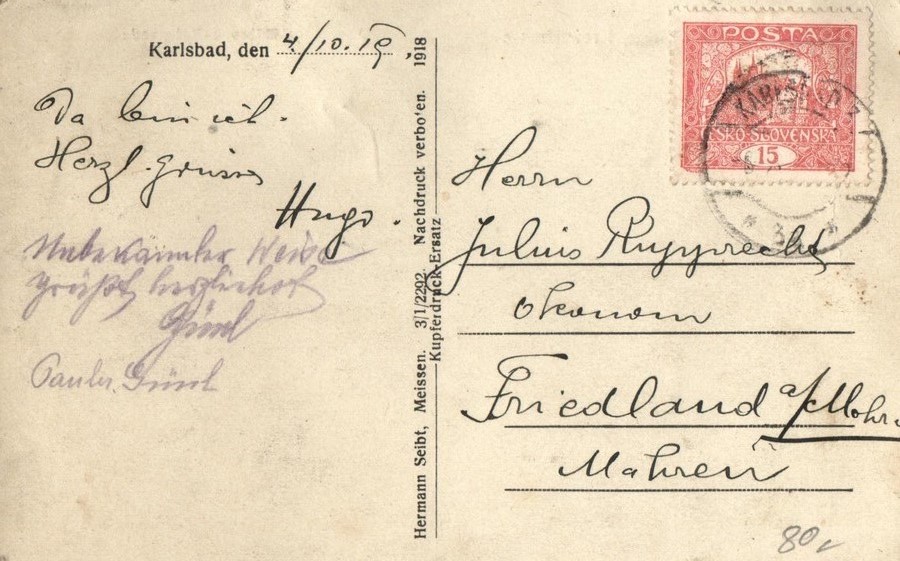 Karlsbad, den 4/10.19, 1918
Da bin ich.
Herzl. Grüsse
Hugo.
Unbekannter Weise
grüßt herzlichst
Hermann Seibt, Meissen. 3/1/2292 Nachdruck verboten.
Kupferdruck-Ersatz
POSTA
ČESKO-SLOVENSKÁ
15
Herrn
Julius Rupprecht
Okonom
Friedland a/Mohra
Mähren
80,-